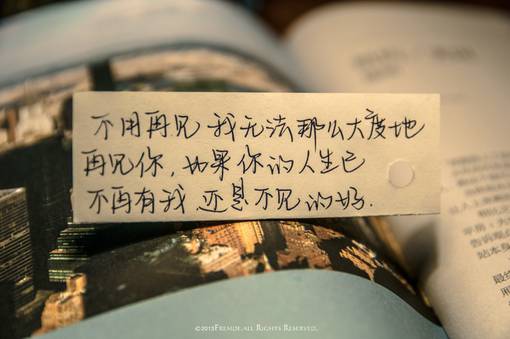 不用再见 我无法那么大度地
再见你,如果你的人生已
不再有我 还是不见的好.
©2013FREMDE.ALL RIGHTS RESERVED.